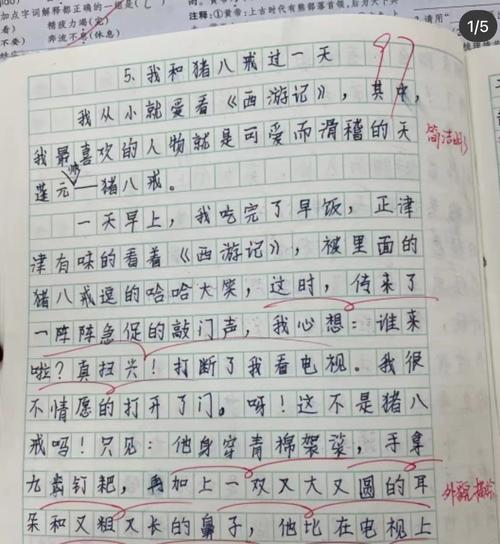 加点字词解释都正确的一组是(
精疲力竭(完)
奔流不息(休息)
注释:①黄帝:上古时代有熊部落首领,后为天下
1/5
97
5.我和猪八戒过一天
我从小就爱看《西游记》,其中,
我最喜欢的人物就是可爱而滑稽的天
蓬元帅——猪八戒。
简洁
一天早上,我吃完了早饭,正津
津有味的看着《西游记》,被里面的
猪八戒逗的哈哈大笑,这时,传来了
一阵阵急促的敲门声,我心想:谁来
啦?真扫兴!打断了我看电视。我很
不情愿的打开了门。呀!这不是猪八
戒吗!只见:他身穿青棉袈裟,手拿
九齿钉耙,再加上一双又大又圆的耳
朵和又粗又长的鼻子,他比在电视上
外貌描写